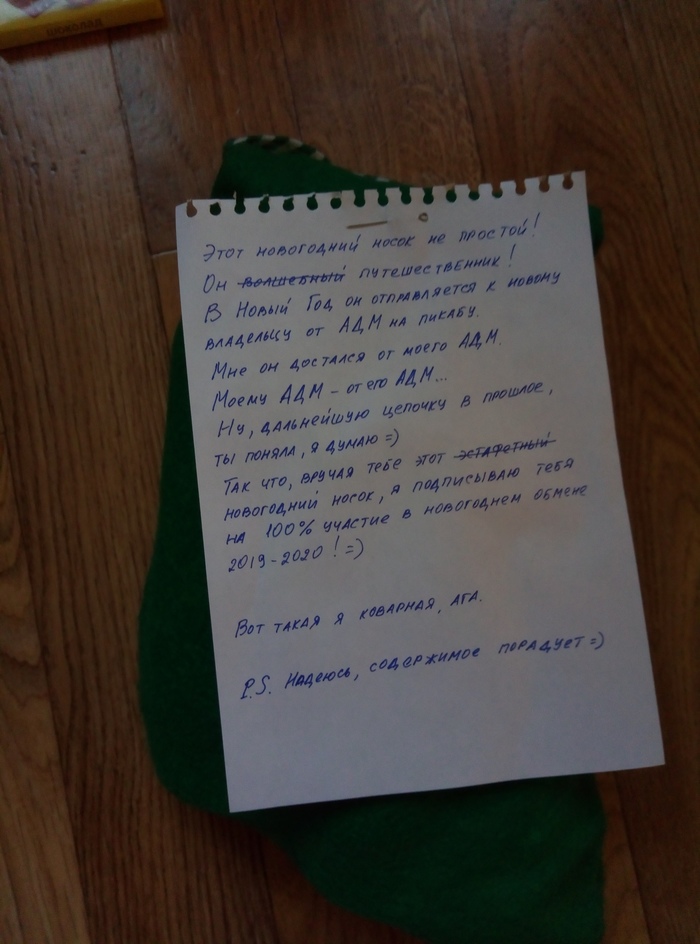 Этот новогодний носок не простой!
Он волшебный путешественник!
В Новый Год он отправляется к новому
владельцу от АДМ на пикабу.
Мне он достался от моего АДМ.
Моему АДМ – от его АДМ...
Ну, дальнейшую цепочку в прошлое,
ты поняла, я думаю =)
Так что, вручая тебе этот эстафетный
новогодний носок, я подписываю тебя
на 100% участие в новогоднем обмене
2019-2020! =)
Вот такая я коварная, ага.
P.S. Надеюсь, содержимое порадует =)